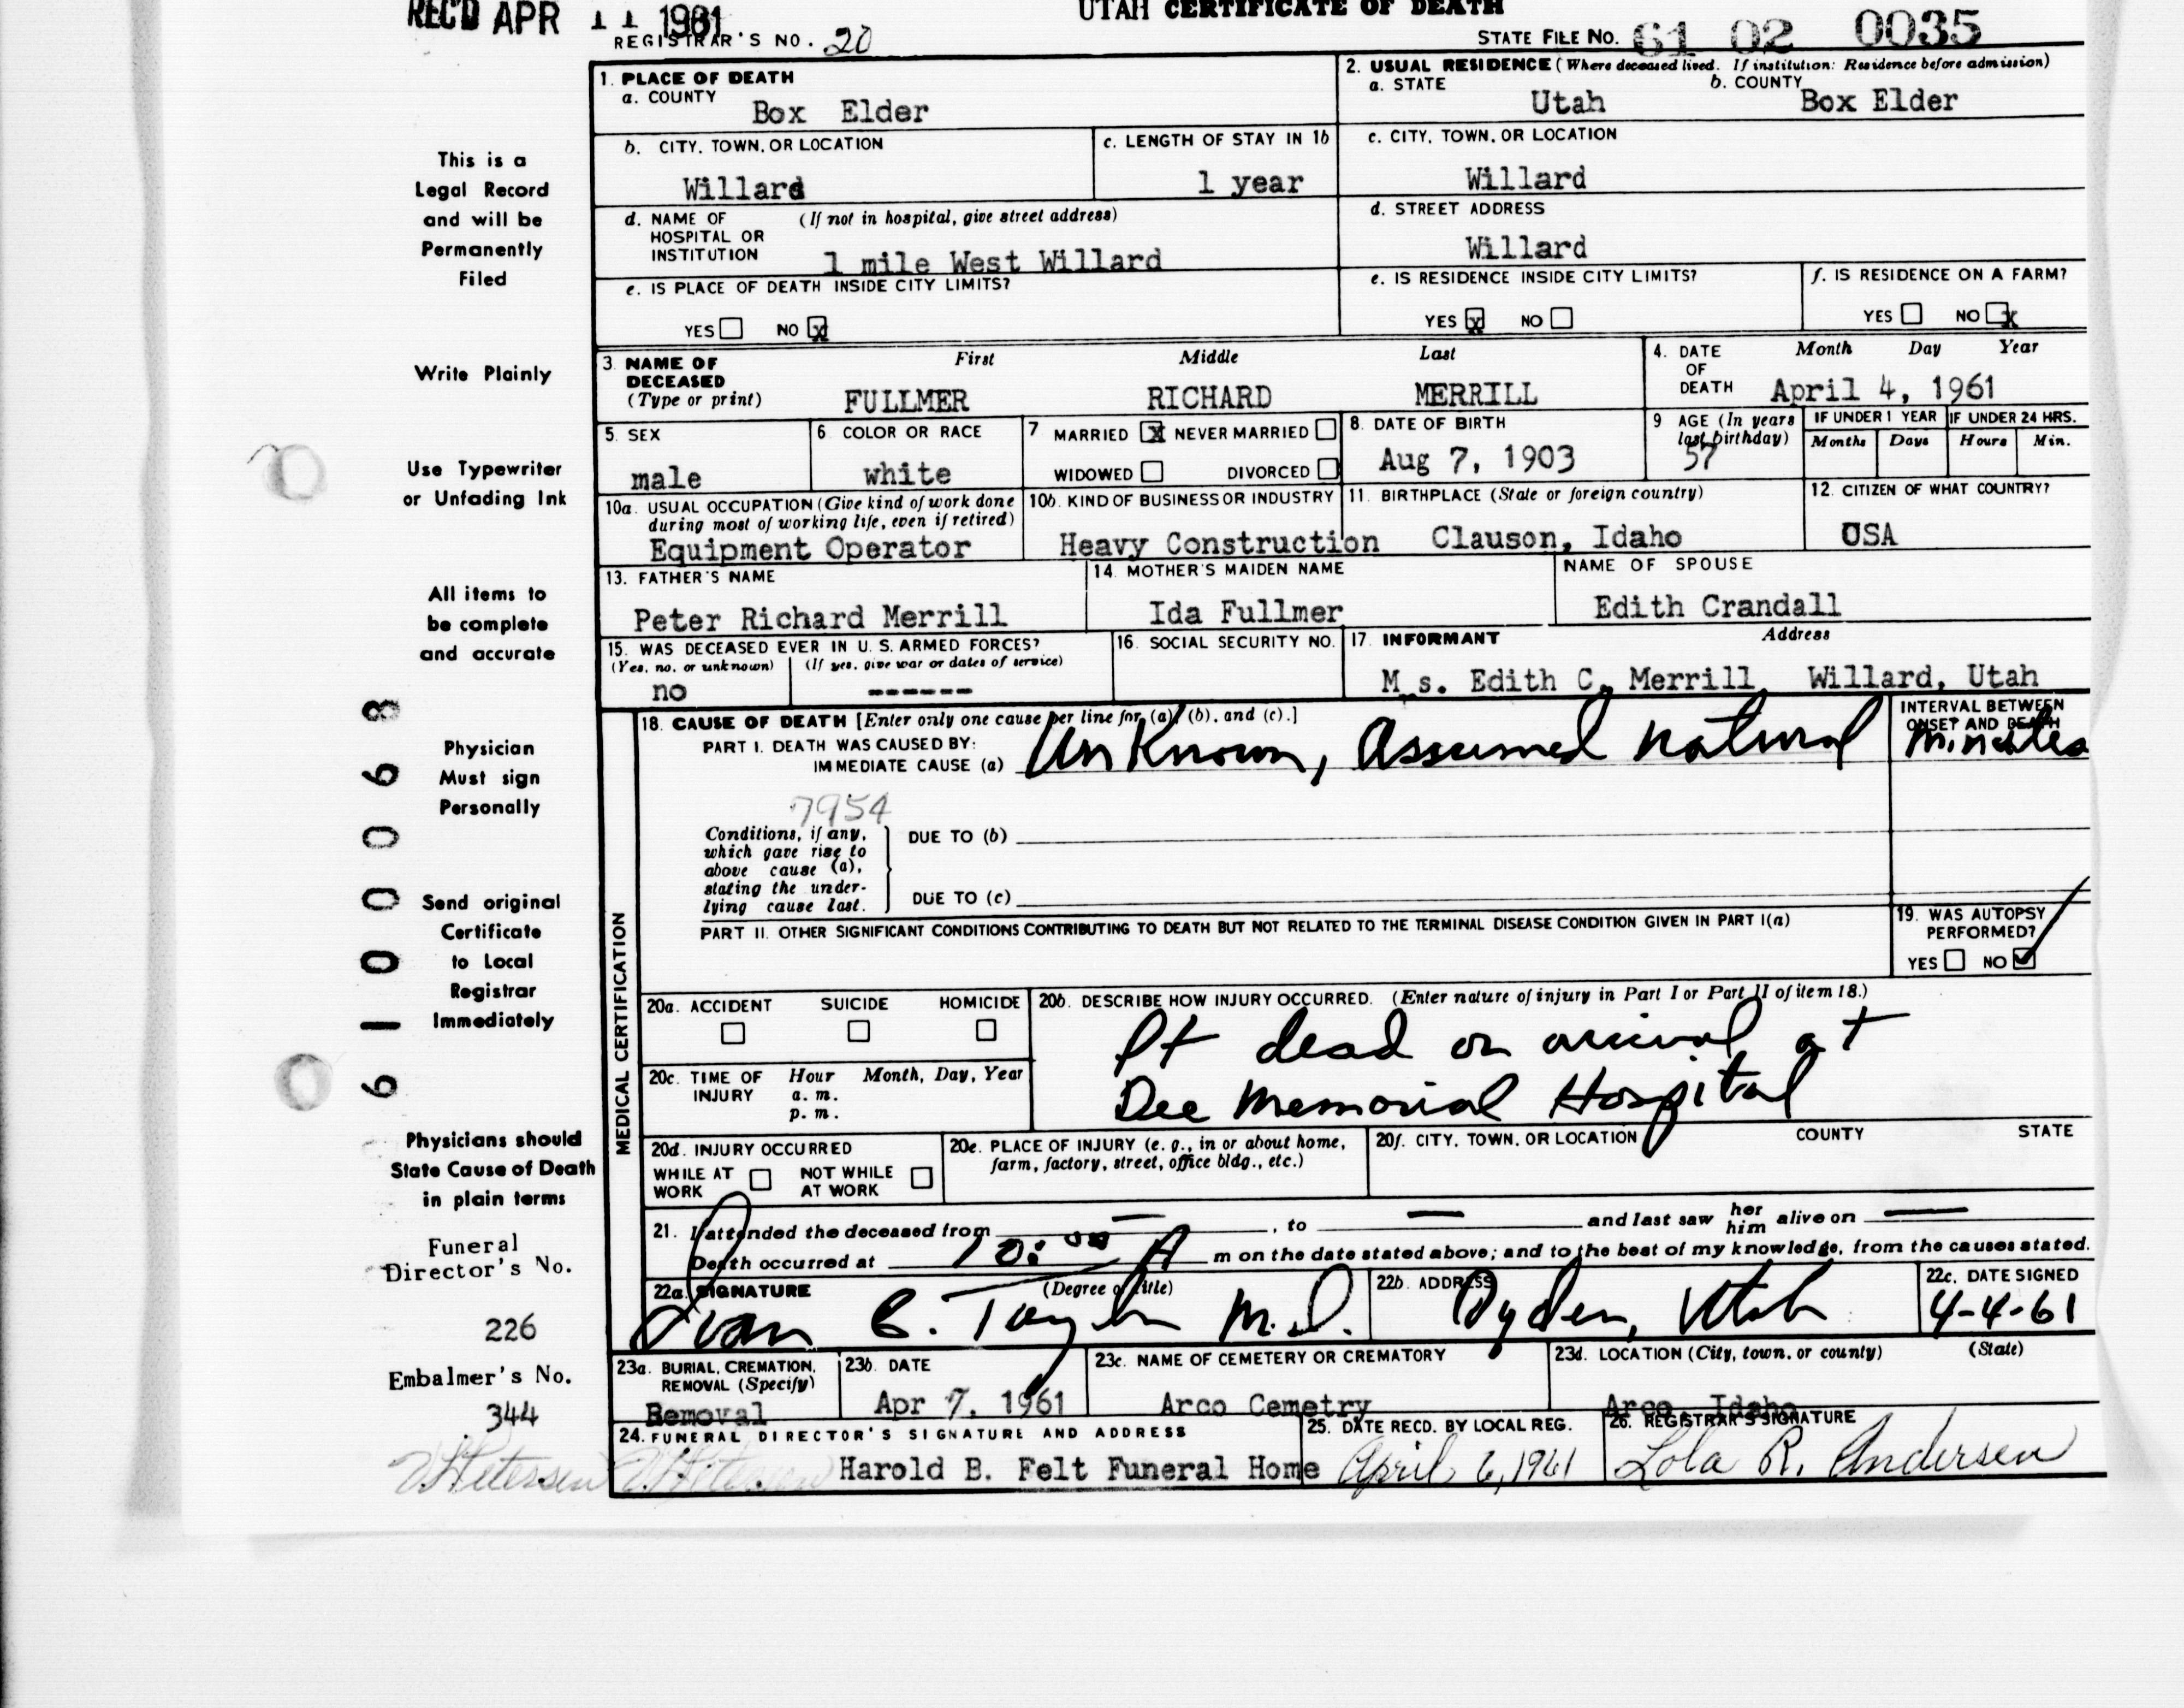 REC'D APR 11 1961
UTAH CERTIFICATE OF DEATH
REGISTRAR'S NO. 20
STATE FILE NO. 61 02 0035
1. PLACE OF DEATH
a. COUNTY
Box Elder
2. USUAL RESIDENCE (Where deceased lived. If institution: Residence before admission)
a. STATE
Utah
b. COUNTY
Box Elder
b. CITY, TOWN, OR LOCATION
Willard
c. LENGTH OF STAY IN 1b
1 year
c. CITY, TOWN, OR LOCATION
Willard
d. NAME OF HOSPITAL OR INSTITUTION
(If not in hospital, give street address)
1 mile West Willard
d. STREET ADDRESS
Willard
e. IS PLACE OF DEATH INSIDE CITY LIMITS?
YES NO x
e. IS RESIDENCE INSIDE CITY LIMITS?
YES x NO
f. IS RESIDENCE ON A FARM?
YES NO x
3. NAME OF DECEASED
(Type or print)
First Middle Last
FULLMER RICHARD MERRILL
4. DATE OF DEATH
Month Day Year
April 4, 1961
5. SEX
male
6. COLOR OR RACE
white
7 MARRIED x NEVER MARRIED
WIDOWED DIVORCED
8. DATE OF BIRTH
Aug 7, 1903
9 AGE (In years last birthday)
57
IF UNDER 1 YEAR
Months Days
IF UNDER 24 HRS.
Hours Min.
10a. USUAL OCCUPATION (Give kind of work done during most of working life, even if retired)
Equipment Operator
10b. KIND OF BUSINESS OR INDUSTRY
Heavy Construction
11. BIRTHPLACE (State or foreign country)
Clauson, Idaho
12. CITIZEN OF WHAT COUNTRY?
USA
13. FATHER'S NAME
Peter Richard Merrill
14. MOTHER'S MAIDEN NAME
Ida Fullmer
NAME OF SPOUSE
Edith Crandall
15. WAS DECEASED EVER IN U. S. ARMED FORCES?
(Yes, no, or unknown) (If yes, give war or dates of service)
no ------
16. SOCIAL SECURITY NO.
17. INFORMANT Address
M s. Edith C. Merrill Willard, Utah
MEDICAL CERTIFICATION
18. CAUSE OF DEATH [Enter only one cause per line for (a), (b), and (c).]
PART I. DEATH WAS CAUSED BY:
IMMEDIATE CAUSE (a) UnKnown, Assumed natural
INTERVAL BETWEEN ONSET AND DEATH
Minutes
7954
Conditions, if any, which gave rise to above cause (a), stating the underlying cause last.
DUE TO (b)
DUE TO (c)
PART II. OTHER SIGNIFICANT CONDITIONS CONTRIBUTING TO DEATH BUT NOT RELATED TO THE TERMINAL DISEASE CONDITION GIVEN IN PART I(a)
19. WAS AUTOPSY PERFORMED?
YES NO ✓
20a. ACCIDENT SUICIDE HOMICIDE
20b. DESCRIBE HOW INJURY OCCURRED. (Enter nature of injury in Part I or Part II of item 18.)
Pt dead on arrival at
Dee Memorial Hospital
20c. TIME OF INJURY
Hour Month, Day, Year
a. m.
p. m.
20d. INJURY OCCURRED
WHILE AT WORK
NOT WHILE AT WORK
20e. PLACE OF INJURY (e. g., in or about home, farm, factory, street, office bldg., etc.)
20f. CITY, TOWN, OR LOCATION COUNTY STATE
21. I attended the deceased from — , to — and last saw her him alive on —
Death occurred at 10:00 A m on the date stated above; and to the best of my knowledge, from the causes stated.
22a. SIGNATURE (Degree or title)
Ivan B. Taylor M.D.
22b. ADDRESS
Ogden, Utah
22c. DATE SIGNED
4-4-61
23a. BURIAL, CREMATION, REMOVAL (Specify)
Removal
23b. DATE
Apr 7, 1961
23c. NAME OF CEMETERY OR CREMATORY
Arco Cemetry
23d. LOCATION (City, town, or county) (State)
Arco, Idaho
24. FUNERAL DIRECTOR'S SIGNATURE AND ADDRESS
Harold B. Felt Funeral Home
25. DATE RECD. BY LOCAL REG.
April 6, 1961
26. REGISTRAR'S SIGNATURE
Lola R. Andersen
This is a
Legal Record
and will be
Permanently
Filed
Write Plainly
Use Typewriter
or Unfading Ink
All items to
be complete
and accurate
Physician
Must sign
Personally
Send original
Certificate
to Local
Registrar
Immediately
Physicians should
State Cause of Death
in plain terms
Funeral
Director's No.
226
Embalmer's No.
344
6 1 0 0 0 6 8